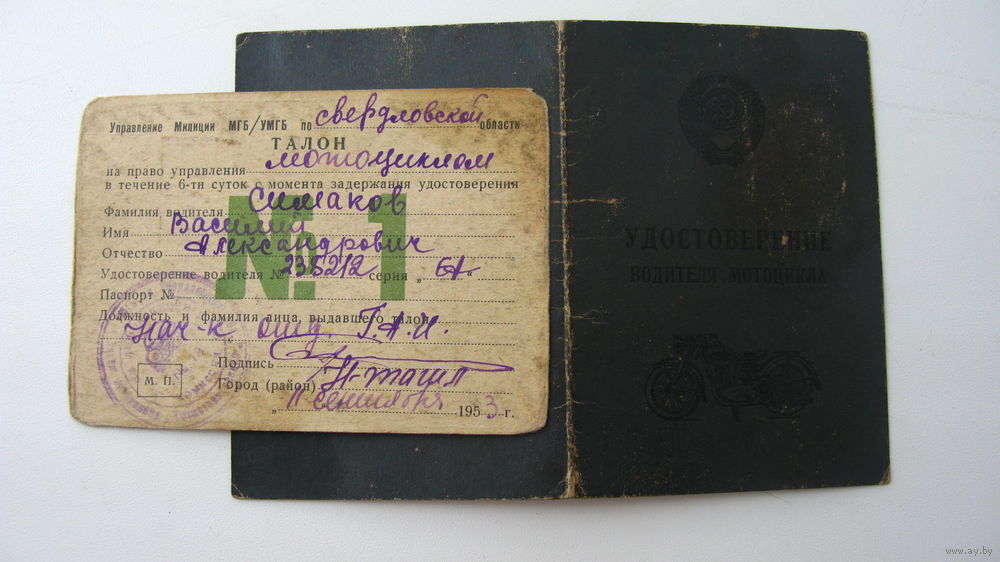 Управление Милиции МГБ/УМГБ по свердловской области
ТАЛОН
на право управления мотоциклом
в течение 6-ти суток с момента задержания удостоверения
№ 1
Фамилия водителя Симаков
Имя Василий
Отчество Александрович
Удостоверение водителя № 235212 серия „
Паспорт №
Должность и фамилия лица, выдавшего талон
Нач-к отд Г.А.И.
Подпись
М. П.
Город (район) Н-Тагил
„11 сентября 1953 г.
УДОСТОВЕРЕНИЕ
ВОДИТЕЛЯ МОТОЦИКЛА
www.ay.by